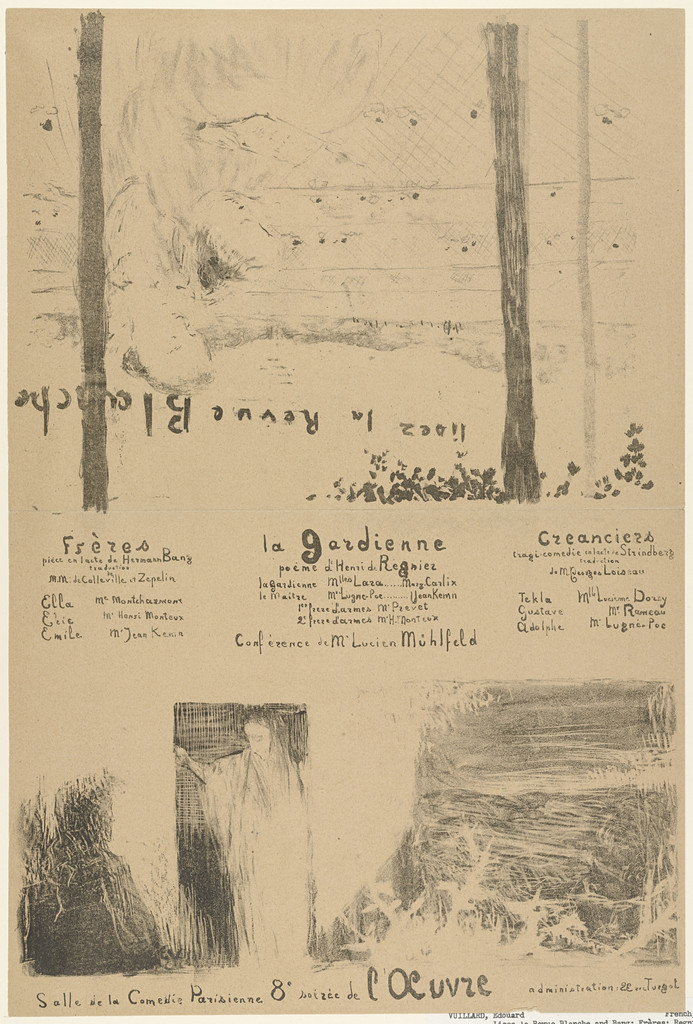 lisez la Revue Blanche
Frères
pièce en 1 acte de Herman Bang
traduction
M.M. de Colleville et Zepelin
Ella Mme Montcharmont
Eric Mr Henri Monteux
Emile Mr Jean Kemm
la Gardienne
poème d'Henri de Regnier
la gardienne Mlles Lara......Marg. Carlix
le Maitre Mr Lugné-Poe........Jean Kemm
1er frère d'armes Mr Prevet
2e frère d'armes Mr Hri Monteux
Conférence de Mr Lucien Mühlfeld
Creanciers
tragi-comedie en 1 acte de Strindberg
traduction
de M. Georges Loiseau
Tekla Mlle Lucienne Dorsy
Gustave Mr Rameau
Adolphe Mr Lugné-Poe
Salle de la Comedie Parisienne 8e soirée de l'Œuvre
administration: 22 rue Turgot
VUILLARD, Edouard French